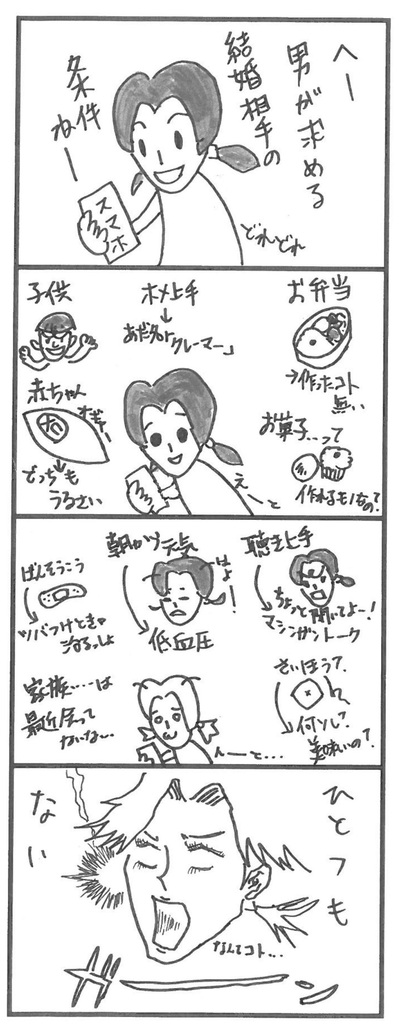 へー
男が求める
結婚相手の
条件
ねー
スマホ
どれどれ
お弁当
→作ったコト
無い
お菓子…って
作れるモノなの?
ホメ上手
あだ名は
「クレーマー」
えーと
子供
赤ちゃん
オギャー
どっちも
うるさい
聴き上手
ちょっと聞いてよー!
マシンガントーク
さいほう?
何ソレ?
美味いの?
朝から元気
はよ!
低血圧
んーと…
ばんそうこう
ツバつけときゃ
治るっしょ
家族……は
最近会って
ないな…
ひとつも
ない
なんてコト…
ガーン